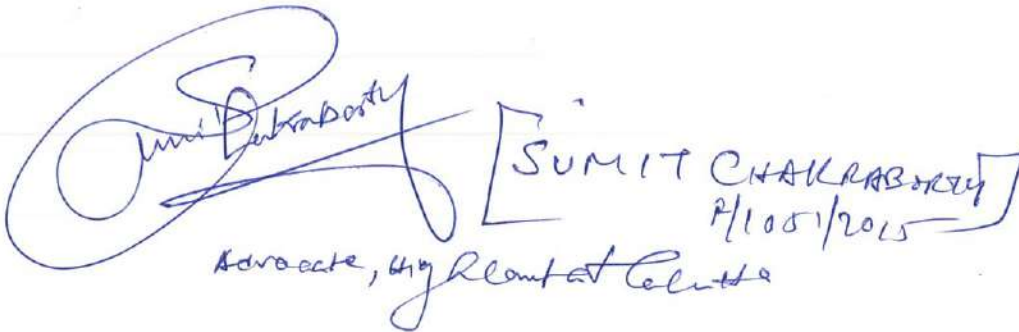 Sumit Chakraborty
[SUMIT CHAKRABORTY]
F/1051/2015
Advocate, High Court at Calcutta